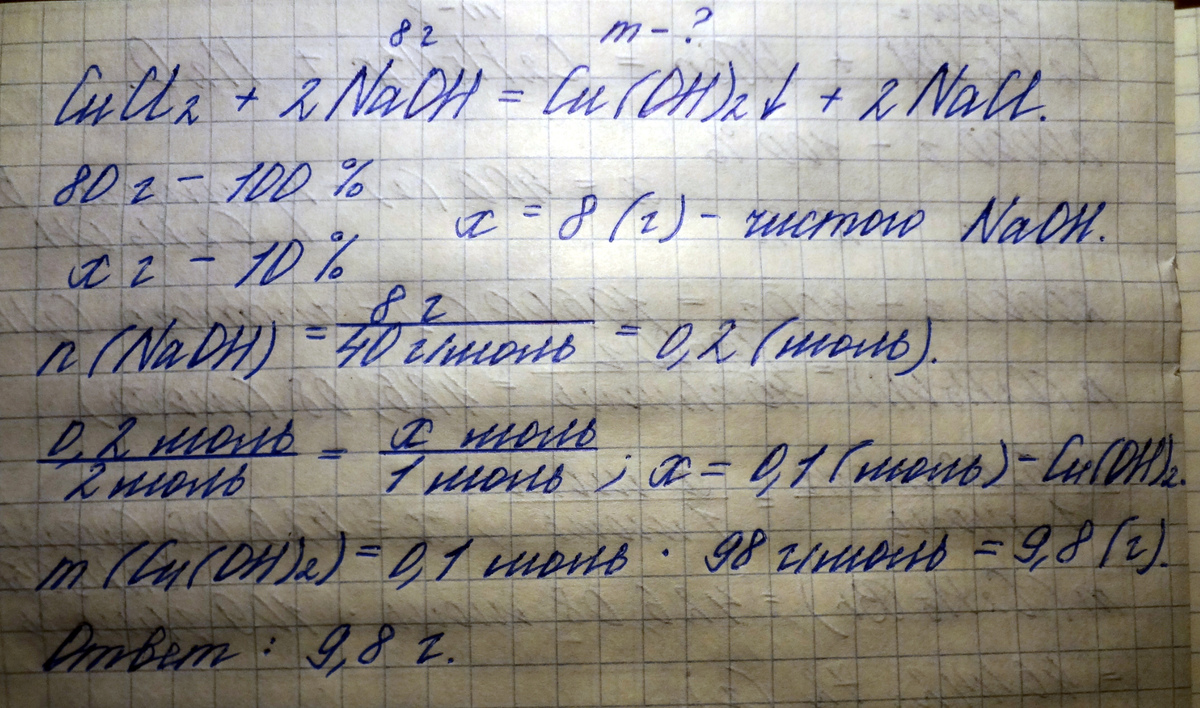 8 г m - ?
CuCl₂ + 2 NaOH = Cu(OH)₂↓ + 2 NaCl.
80 г - 100 %
x = 8 (г) - чистого NaOH.
x г - 10 %
n (NaOH) = 8 г / 40 г/моль = 0,2 (моль).
0,2 моль / 2 моль = x моль / 1 моль ; x = 0,1 (моль) - Cu(OH)₂.
m (Cu(OH)₂) = 0,1 моль · 98 г/моль = 9,8 (г).
Ответ : 9,8 г.